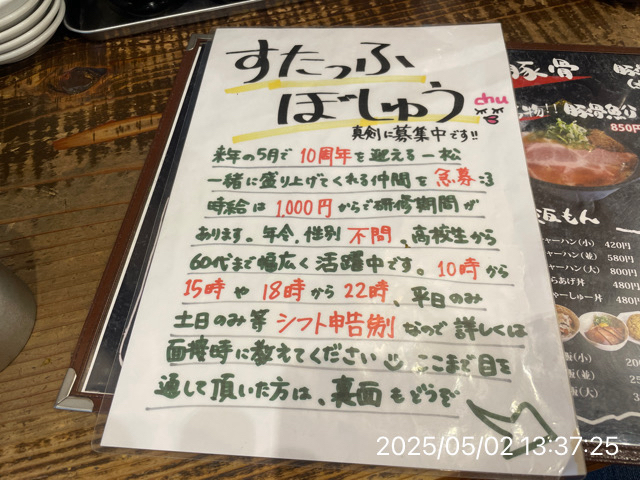 すたっふ
ぼしゅう
chu
真剣に募集中です!!
来年の5月で10周年を迎える一松
一緒に盛り上げてくれる仲間を急募:3
時給は1,000円からで研修期間が
あります。年令、性別不問、高校生から
60代まで幅広く活躍中です。10時から
15時や18時から22時、平日のみ
土日のみ等シフト申告制なので詳しくは
面接時に教えてください ここまで目を
通して頂いた方は、裏面もどうぞ
豚骨
豚骨魚介
850円
飯もん
チャーハン(小) 420円
チャーハン(並) 580円
チャーハン(大) 800円
らあげ丼 480円
ちゃーしゅー丼 480円
飯(小)
飯(並)
飯(大)
2025/05/02 13:37:25